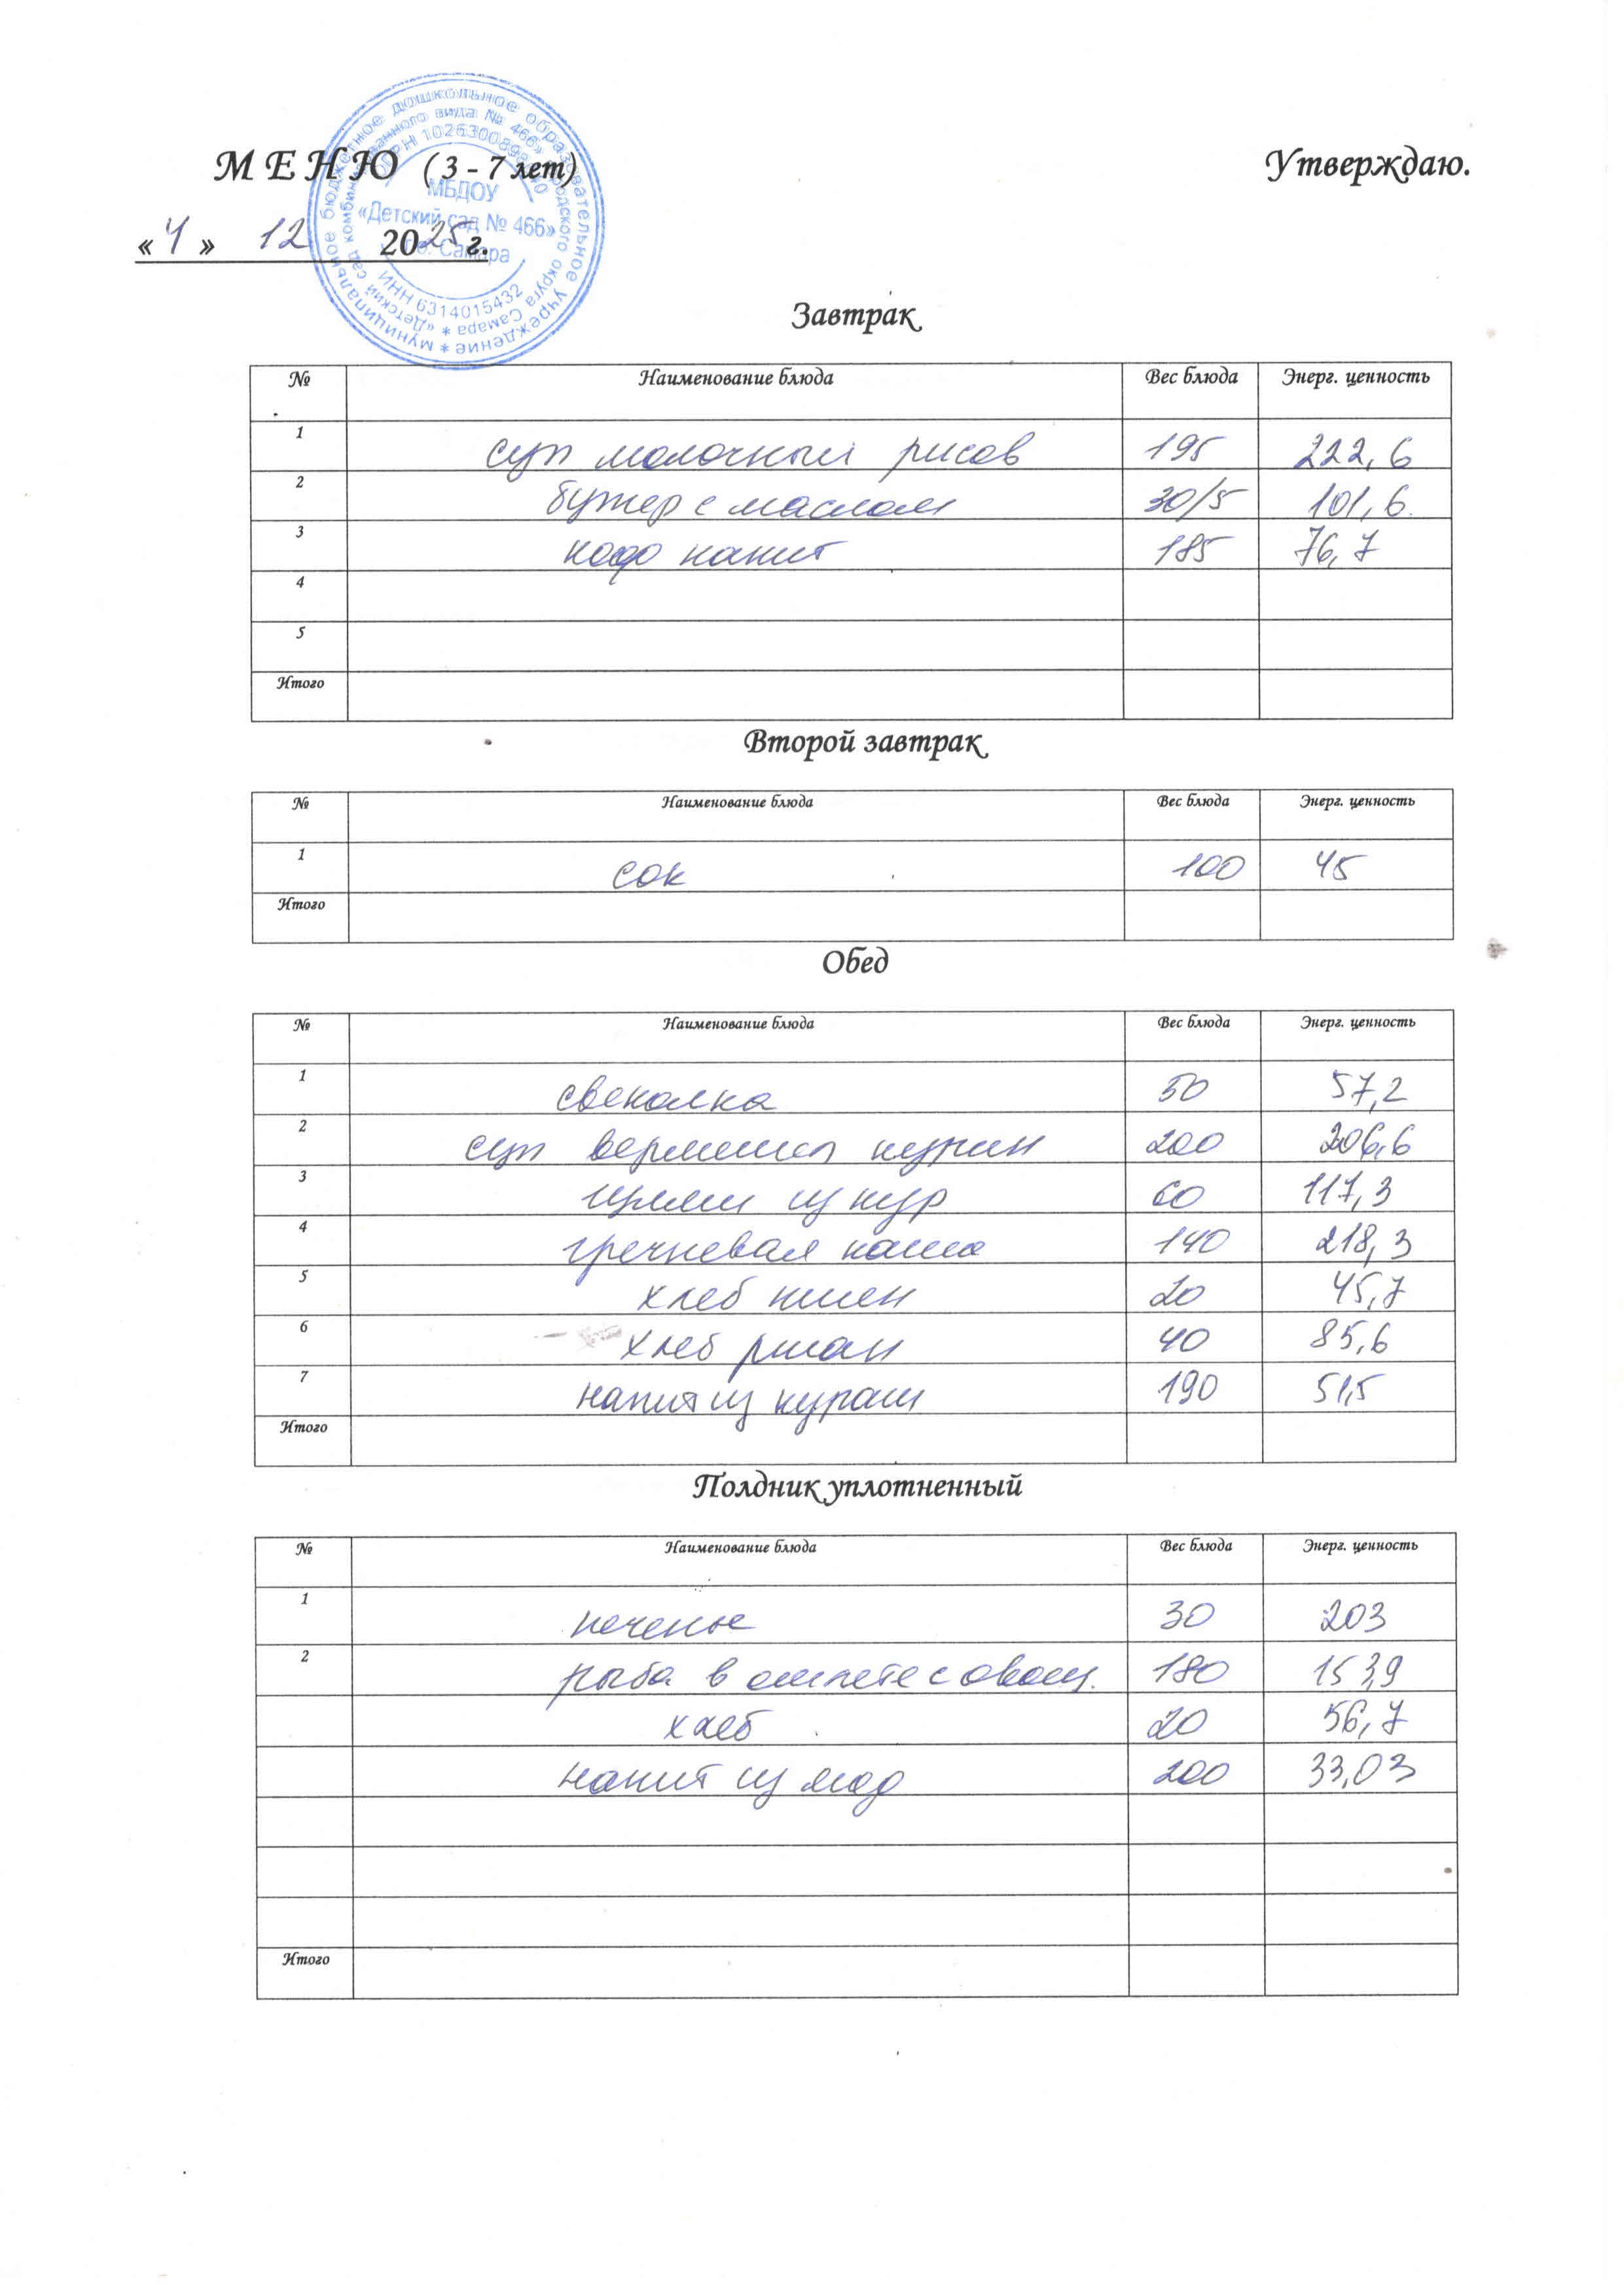 муниципальное бюджетное дошкольное образовательное учреждение *
«Детский сад комбинированного вида № 466» городского округа Самара *
ИНН 6314015432
МБДОУ
«Детский сад № 466»
г.о. Самара
МЕНЮ (3 – 7 лет) Утверждаю.
«4» 12 2025 г.
Завтрак
№ Наименование блюда Вес блюда Энерг. ценность
1 суп молочный рисов 195 222,6
2 бутер с маслом 30/5 101,6
3 кофе напит 185 76,7
4
5
Итого
Второй завтрак
№ Наименование блюда Вес блюда Энерг. ценность
1 сок 100 45
Итого
Обед
№ Наименование блюда Вес блюда Энерг. ценность
1 свеколка 50 57,2
2 суп вермишел курин 200 206,6
3 из кур 60 117,3
4 гречневая каша 140 218,3
5 хлеб пшен 20 45,7
6 хлеб ржан 40 85,6
7 напит из кураги 190 51,5
Итого
Полдник уплотненный
№ Наименование блюда Вес блюда Энерг. ценность
1 печенье 30 203
2 рыба в омлете с овощ. 180 153,9
хлеб 20 56,7
напит из 200 33,03
Итого